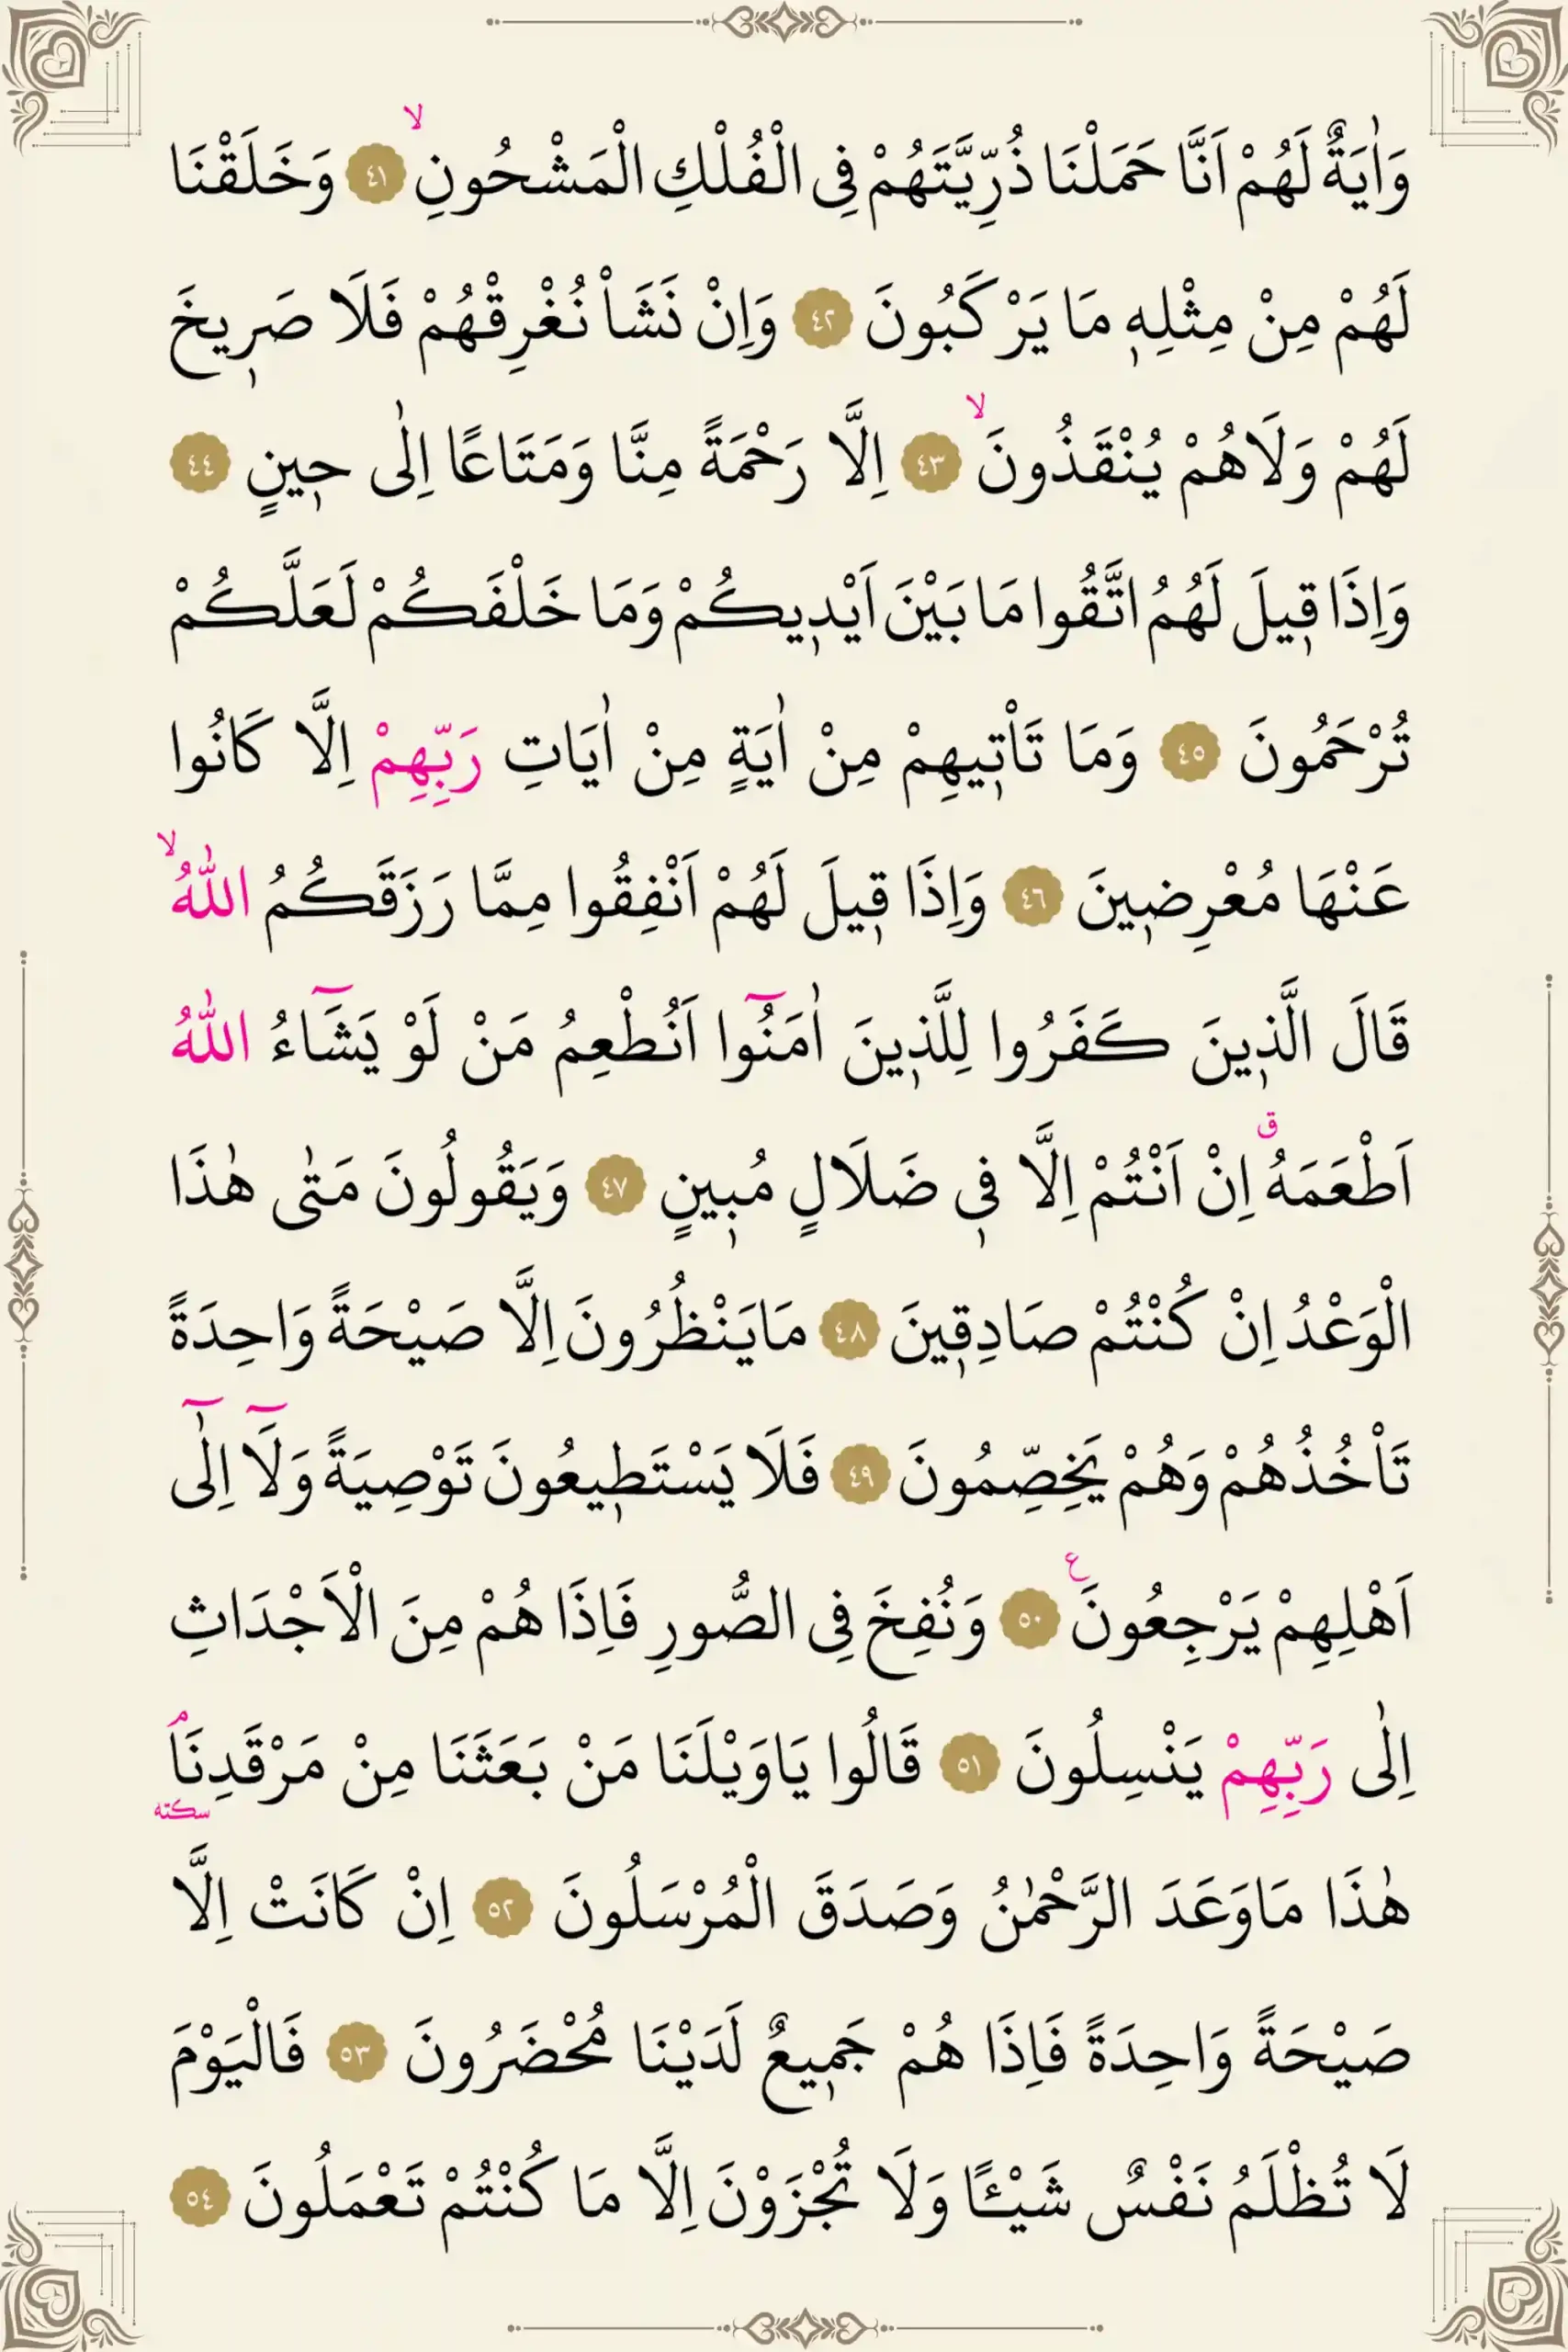 وَاٰيَةٌ لَهُمْ اَنَّا حَمَلْنَا ذُرِّيَّتَهُمْ فِى الْفُلْكِ الْمَشْحُونِۙ ٤١ وَخَلَقْنَا
لَهُمْ مِنْ مِثْلِهٖ مَا يَرْكَبُونَ ٤٢ وَاِنْ نَشَاْ نُغْرِقْهُمْ فَلَا صَرٖيخَ
لَهُمْ وَلَاهُمْ يُنْقَذُونَۙ ٤٣ اِلَّا رَحْمَةً مِنَّا وَمَتَاعًا اِلٰى حٖينٍ ٤٤
وَاِذَا قٖيلَ لَهُمُ اتَّقُوا مَا بَيْنَ اَيْدٖيكُمْ وَمَا خَلْفَكُمْ لَعَلَّكُمْ
تُرْحَمُونَ ٤٥ وَمَا تَاْتٖيهِمْ مِنْ اٰيَةٍ مِنْ اٰيَاتِ رَبِّهِمْ اِلَّا كَانُوا
عَنْهَا مُعْرِضٖينَ ٤٦ وَاِذَا قٖيلَ لَهُمْ اَنْفِقُوا مِمَّا رَزَقَكُمُ اللّٰهُۙ
قَالَ الَّذٖينَ كَفَرُوا لِلَّذٖينَ اٰمَنُٓوا اَنُطْعِمُ مَنْ لَوْ يَشَٓاءُ اللّٰهُ
اَطْعَمَهُࣗ اِنْ اَنْتُمْ اِلَّا فٖى ضَلَالٍ مُبٖينٍ ٤٧ وَيَقُولُونَ مَتٰى هٰذَا
الْوَعْدُ اِنْ كُنْتُمْ صَادِقٖينَ ٤٨ مَايَنْظُرُونَ اِلَّا صَيْحَةً وَاحِدَةً
تَاْخُذُهُمْ وَهُمْ يَخِصِّمُونَ ٤٩ فَلَا يَسْتَطٖيعُونَ تَوْصِيَةً وَلَٓا اِلٰٓى
اَهْلِهِمْ يَرْجِعُونَࣖ ٥٠ وَنُفِخَ فِى الصُّورِ فَاِذَا هُمْ مِنَ الْاَجْدَاثِ
اِلٰى رَبِّهِمْ يَنْسِلُونَ ٥١ قَالُوا يَاوَيْلَنَا مَنْ بَعَثَنَا مِنْ مَرْقَدِنَاۢ سكته
هٰذَا مَاوَعَدَ الرَّحْمٰنُ وَصَدَقَ الْمُرْسَلُونَ ٥٢ اِنْ كَانَتْ اِلَّا
صَيْحَةً وَاحِدَةً فَاِذَا هُمْ جَمٖيعٌ لَدَيْنَا مُحْضَرُونَ ٥٣ فَالْيَوْمَ
لَا تُظْلَمُ نَفْسٌ شَيْـًٔا وَلَا تُجْزَوْنَ اِلَّا مَا كُنْتُمْ تَعْمَلُونَ ٥٤